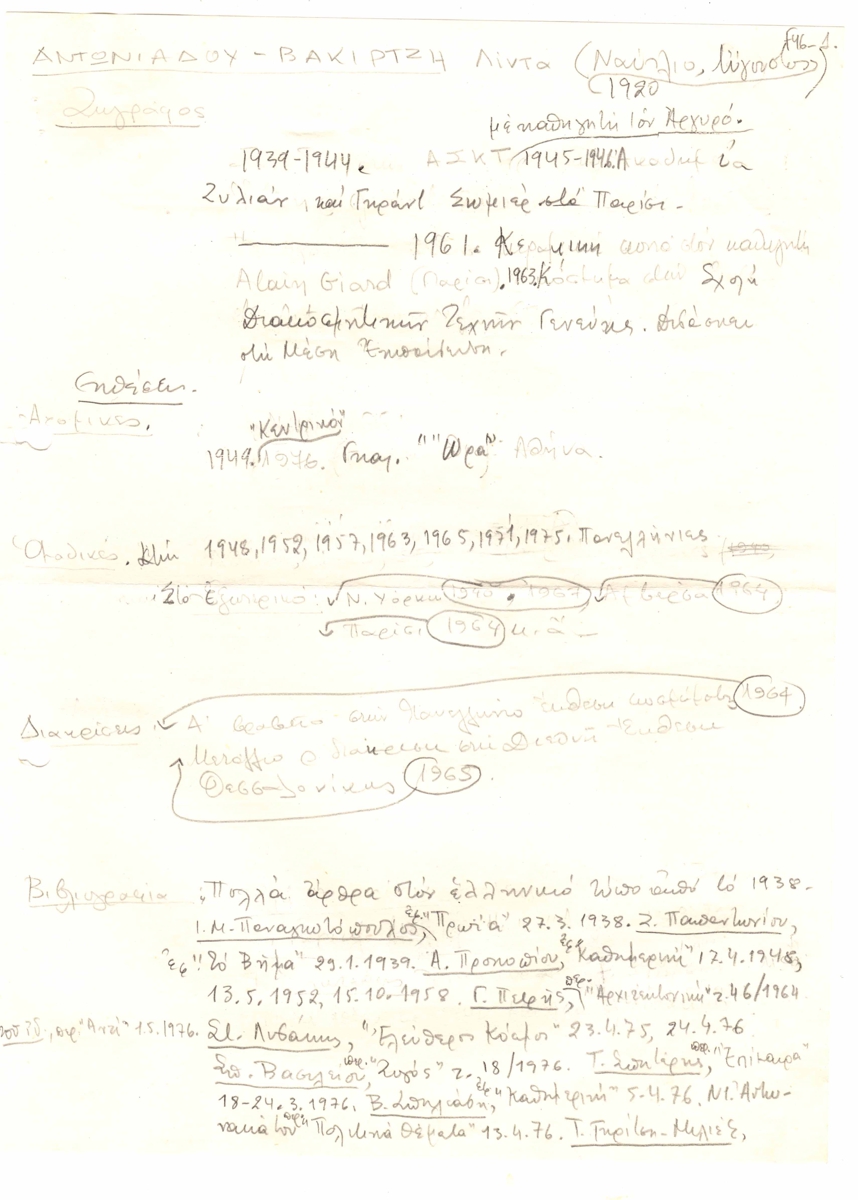 Γ46-1.
ΑΝΤΩΝΙΑΔΟΥ - ΒΑΚΙΡΤΖΗ Λίντα (Ναύπλιο, Αὔγουστος)
1920
Ζωγράφος
μὲ καθηγητὴ τὸν Ἀργυρό.
1939-1944. ΑΣΚΤ 1945-1946. Ἀκαδημία
Ζυλιάν, καὶ Γκράντ Σωμιὲρ στὸ Παρίσι.
1961. Κεραμικὴ κοντὰ στὸν καθηγητὴ
Alain Giard (Παρίσι). 1963. Κόστυμα στὴ Σχολὴ
Διακοσμητικῶν Τεχνῶν Γενεύης. Διδάσκει
στὴ Μέση Ἐκπαίδευση.
Ἐκθέσεις.
Ἀτομικές.
"Κεντρικόν"
1949. 1976. Γκαλ. "Ὥρα" Ἀθήνα.
Ὁμαδικές. Στὶς 1948, 1952, 1957, 1963, 1965, 1971, 1975. Πανελλήνιες
Στὸ Ἐξωτερικό: Ν. Ὑόρκη 1940, 1967, Ἀμβέρσα 1964
Παρίσι 1964 κ.ἄ.
Διακρίσεις. Α' βραβεῖο στὴν Πανελλήνιο Ἔκθεση κοσμήματος 1964
Μετάλλιο διάκριση στὴ Διεθνῆ Ἔκθεση
Θεσσαλονίκης 1965.
Βιβλιογραφία: Πολλὰ ἄρθρα στὸν ἑλληνικὸ τύπο ἀπὸ τὸ 1938-
Ι. Μ. Παναγιωτόπουλος, ἐφ. "Πρωΐα" 27.3.1938. Ζ. Παπαντωνίου,
ἐφ. "Τὸ Βῆμα" 29.1.1939. Ἀ. Προκοπίου, ἐφ. "Καθημερινὴ" 17.4.1948,
13.5.1952, 15.10.1958. Γ. Πετρῆς, περ. "Ἀρχιτεκτονικὴ" τ. 46/1964
περ. "Ἀντὶ" 15.1976. Στ. Λυδάκης, "Ἐλεύθερος Κόσμος" 23.4.75, 24.4.76
Σπ. Βασιλείου, περ. "Ζυγός" τ. 18/1976. Τ. Σπητέρης, περ. "Ἐπίκαιρα"
18-24.3.1976. Β. Σπηλιάδη, ἐφ. "Καθημερινὴ" 5-4.76. Ντ. Ἀντω-
νακάτου περ. "Πολιτικὰ Θέματα" 13.4.76. Τ. Γκρίτση-Μιλλιέξ,